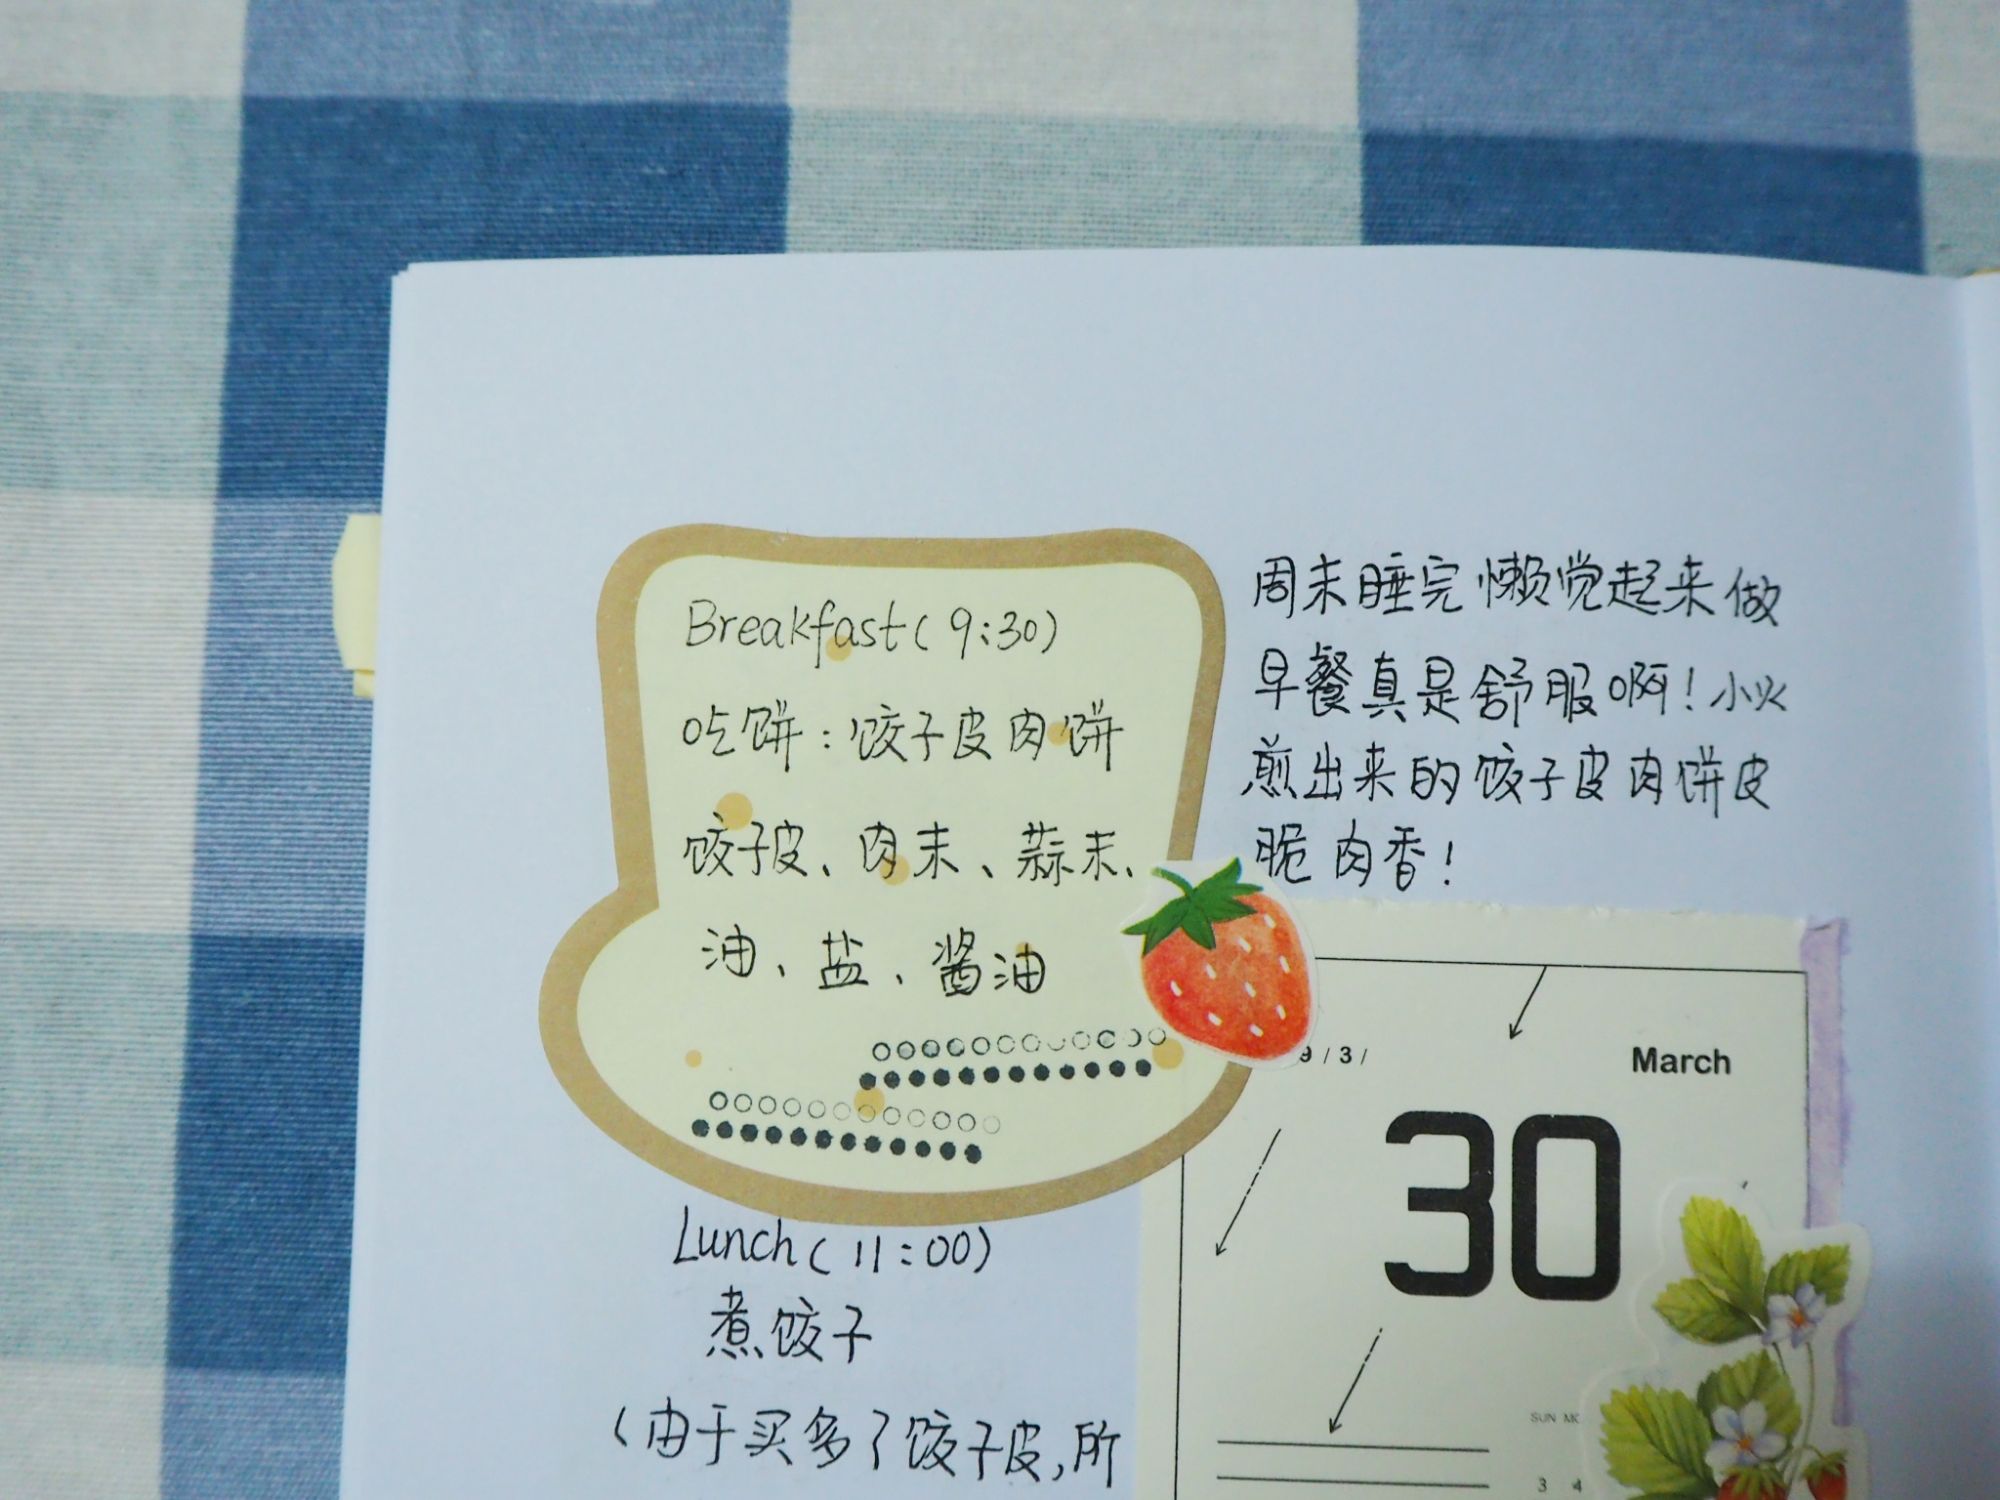 Breakfast(9:30)
吃饼:饺子皮肉饼
饺子皮、肉末、蒜末、
油、盐、酱油
周末睡完懒觉起来做
早餐真是舒服啊!小火
煎出来的饺子皮肉饼皮
脆肉香!
9/3/
March
30
SUN
3 4
Lunch(11:00)
煮饺子
(由于买多了饺子皮,所